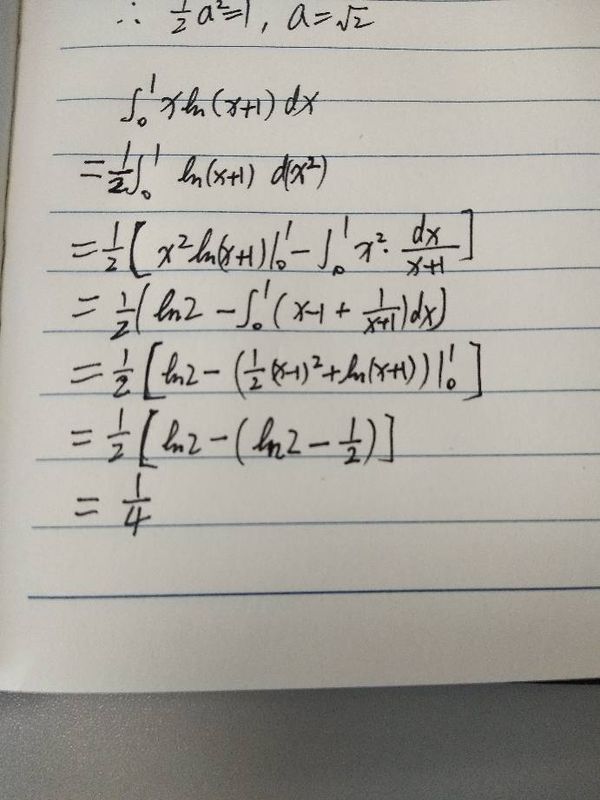 ∴ ½a²=1, a=√2
∫₀¹ xln(x+1) dx
=½∫₀¹ ln(x+1) d(x²)
=½[x²ln(x+1)|₀¹-∫₀¹x²·dx/(x+1)]
=½(ln2-∫₀¹(x-1+1/(x+1))dx)
=½[ln2-(½(x-1)²+ln(x+1))|₀¹]
=½[ln2-(ln2-½)]
=¼